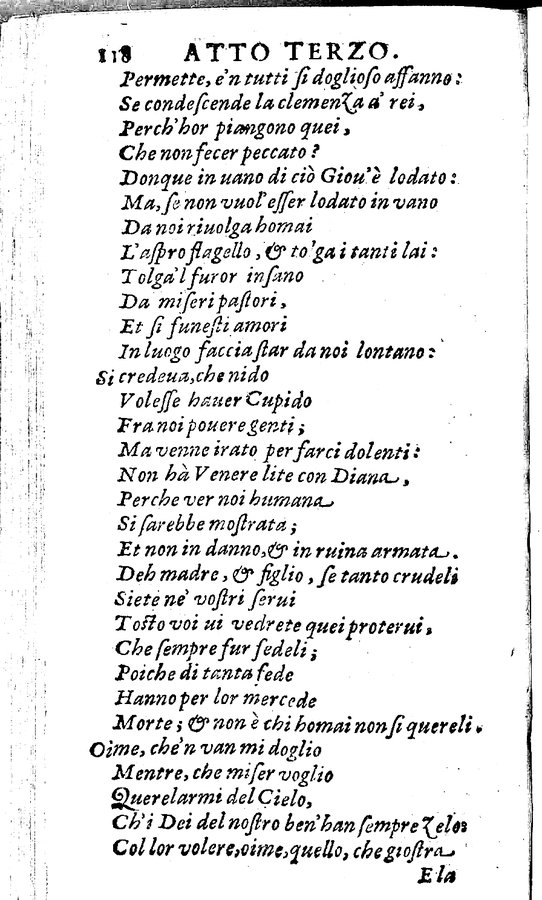 118 ATTO TERZO.
Permette, e'n tutti ſi doglioſo aſſanno:
Se condeſcende la clemenza a' rei,
Perch'hor piangono quei,
Che non fecer peccato?
Donque in uano di ciò Giou'è lodato:
Ma, ſe non vuol' eſſer lodato in vano
Da noi riuolga homai
L'aſpro flagello, & to'ga i tanti lai:
Tolga'l furor inſano
Da miſeri paſtori,
Et ſi funeſti amori
In luogo faccia ſtar da noi lontano:
Si credeua, che nido
Voleſſe hauer Cupido
Fra noi pouere genti;
Ma venne irato per farci dolenti:
Non hà Venere lite con Diana,
Perche ver noi humana
Si ſarebbe moſtrata;
Et non in danno, & in ruina armata.
Deh madre, & figlio, ſe tanto crudeli
Siete ne' voſtri ſerui
Toſto voi ui vedrete quei proterui,
Che ſempre fur fedeli;
Poiche di tanta fede
Hanno per lor mercede
Morte; & non è chi homai non ſi quereli.
Oime, che'n van mi doglio
Mentre, che miſer voglio
Querelarmi del Cielo,
Ch'i Dei del noſtro ben'han ſempre zelo:
Col lor volere, oime, quello, che gioſtra
E la